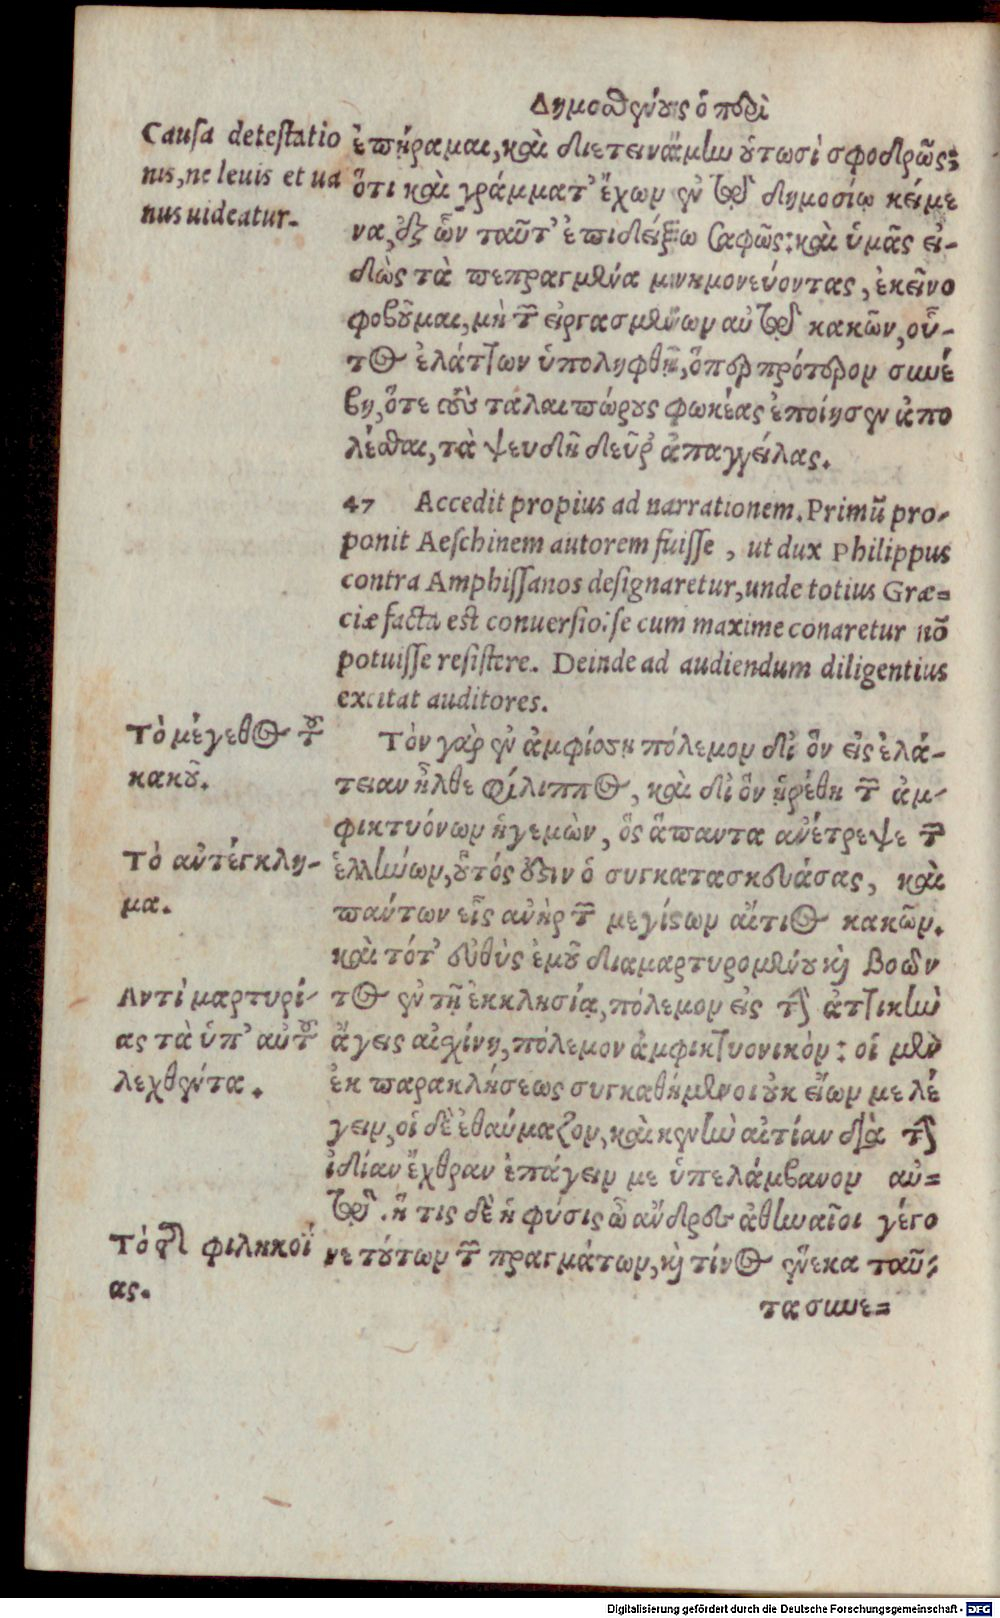 Δημοσθένους ὁ περὶ
Causa detestatio
nis, ne leuis et ua
nus uideatur.
ἐπήραμαι, καὶ διετεινάμην οὑτωσὶ σφοδρῶς;
ὅτι καὶ γράμματ' ἔχων ἐν τῷ δημοσίῳ κείμε
να, ἐξ ὧν ταῦτ' ἐπιδείξω σαφῶς: καὶ ὑμᾶς εἰ-
δὼς τὰ πεπραγμένα μνημονεύοντας, ἐκεῖνο
φοβοῦμαι, μὴ τῶν εἰργασμένων αὐτῷ κακῶν, οὗ-
τος ἐλάττων ὑποληφθῇ, ὅπερ πρότερον συνέ
βη, ὅτε τοὺς ταλαιπώρους φωκέας ἐποίησεν ἀπο
λέσθαι, τὰ ψευδῆ δεῦρ' ἀπαγγείλας.
47 Accedit propius ad narrationem. Primũ pro-
ponit Aeschinem autorem fuisse, ut dux Philippus
contra Amphissanos designaretur, unde totius Græ=
ciæ facta est conuersio: se cum maxime conaretur nõ
potuisse resistere. Deinde ad audiendum diligentius
excitat auditores.
Τὸ μέγεθος τοῦ
κακοῦ.
Τὸν γὰρ ἐν ἀμφίσσῃ πόλεμον δι' ὃν εἰς ἐλά-
τειαν ἦλθε φίλιππος, καὶ δι' ὃν ᾑρέθη τῶν ἀμ-
φικτυόνων ἡγεμὼν, ὃς ἅπαντα ἀνέτρεψε τῶν
Τὸ ἀντέγκλη-
μα.
ἑλλήνων, οὗτός ἐστιν ὁ συγκατασκευάσας, καὶ
πάντων εἷς ἀνὴρ τῶν μεγίστων αἴτιος κακῶν.
καὶ τότ' εὐθὺς ἐμοῦ διαμαρτυρομένου καὶ βοῶν
Αντὶ μαρτυρί-
ας τὰ ὑπ' αὐτοῦ
λεχθέντα.
τος ἐν τῇ ἐκκλησίᾳ, πόλεμον εἰς τὴν ἀττικὴν
ἄγεις αἰσχίνη, πόλεμον ἀμφικτυονικόν: οἱ μὲν
ἐκ παρακλήσεως συγκαθήμενοι οὐκ εἴων με λέ
γειν, οἱ δὲ ἐθαύμαζον, καὶ κενὴν αἰτίαν διὰ τὴν
ἰδίαν ἔχθραν ἐπάγειν με ὑπελάμβανον αὐ=
τῷ. ἥ τις δὲ ἡ φύσις ὦ ἄνδρες ἀθηναῖοι γέγο
Τὸ τῆς φιληκοΐ
ας.
νε τούτων τῶν πραγμάτων, καὶ τίνος ἕνεκα ταῦ:
τα συνε=
Digitalisierung gefördert durch die Deutsche Forschungsgemeinschaft - DFG